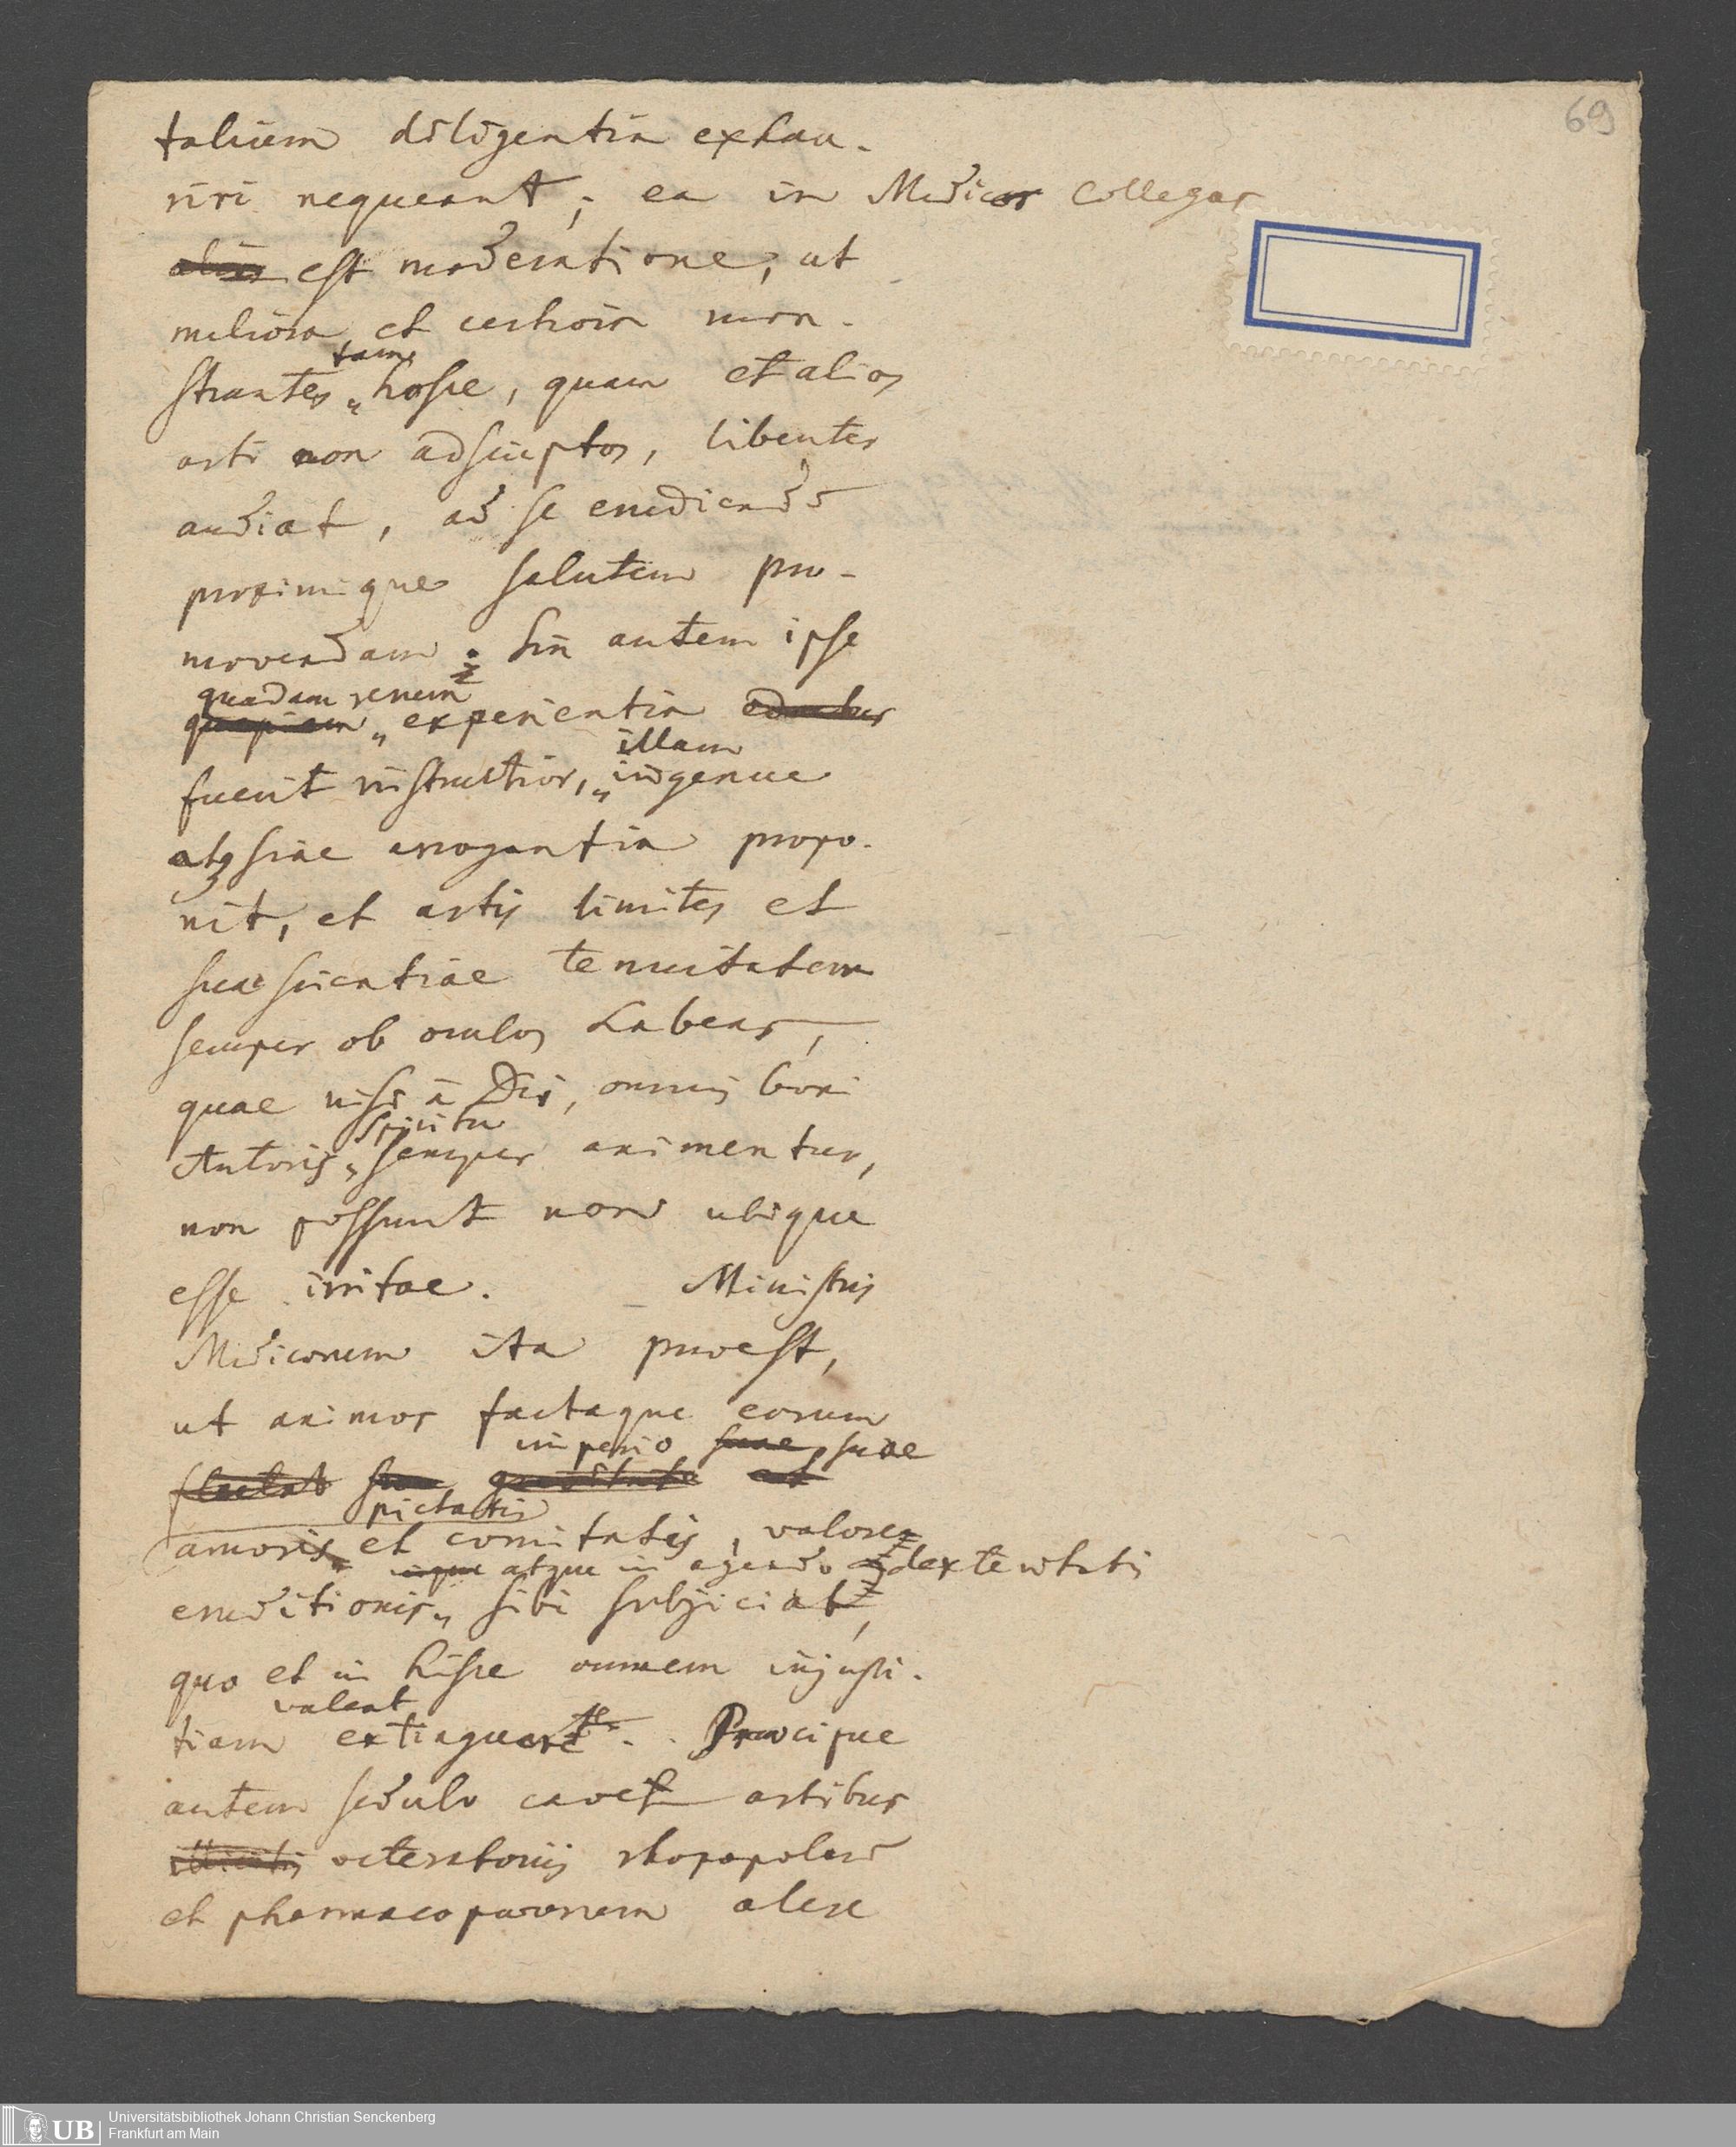 69
talium diligentia exhau-
riri nequeant; ea in Medicos Collegas
alios est moderatione, ut
meliora et certiora mon-
tam
strantes hosce, quam et alios
arti non adscriptos, libenter
audiat, ad se erudiendū
proximique salutem pro-
movendam. Sin autem ipse
quadam rerum
quapiam experientia
illam
fuerit instructior, ingenue
atq sine arrogantia propo-
nit, et artis limites et
suae scientiae tenuitatem
semper ob oculos habeas,
quae nisi a Dei, omnis boni
Spiritu
Autoris semper animentur,
non possunt non ubique
esse irritae. Ministris
Medicorum ita prodest,
ut animos factaque eorum
imperio suae suae
flectat sua gravitate et
pietatis
amoris et comitatis, valores
inque atque in agendo dexteritatis
eruditionis sibi subjiciat,
quo et in hisce omnem injusti-
valeat
tiam extinguere. Praecipue
autem sedulo cavet artibus
illicitis veteratoriis rhopopolarū
et pharmacoparorum alere
Universitätsbibliothek Johann Christian Senckenberg
UB
Frankfurt am Main